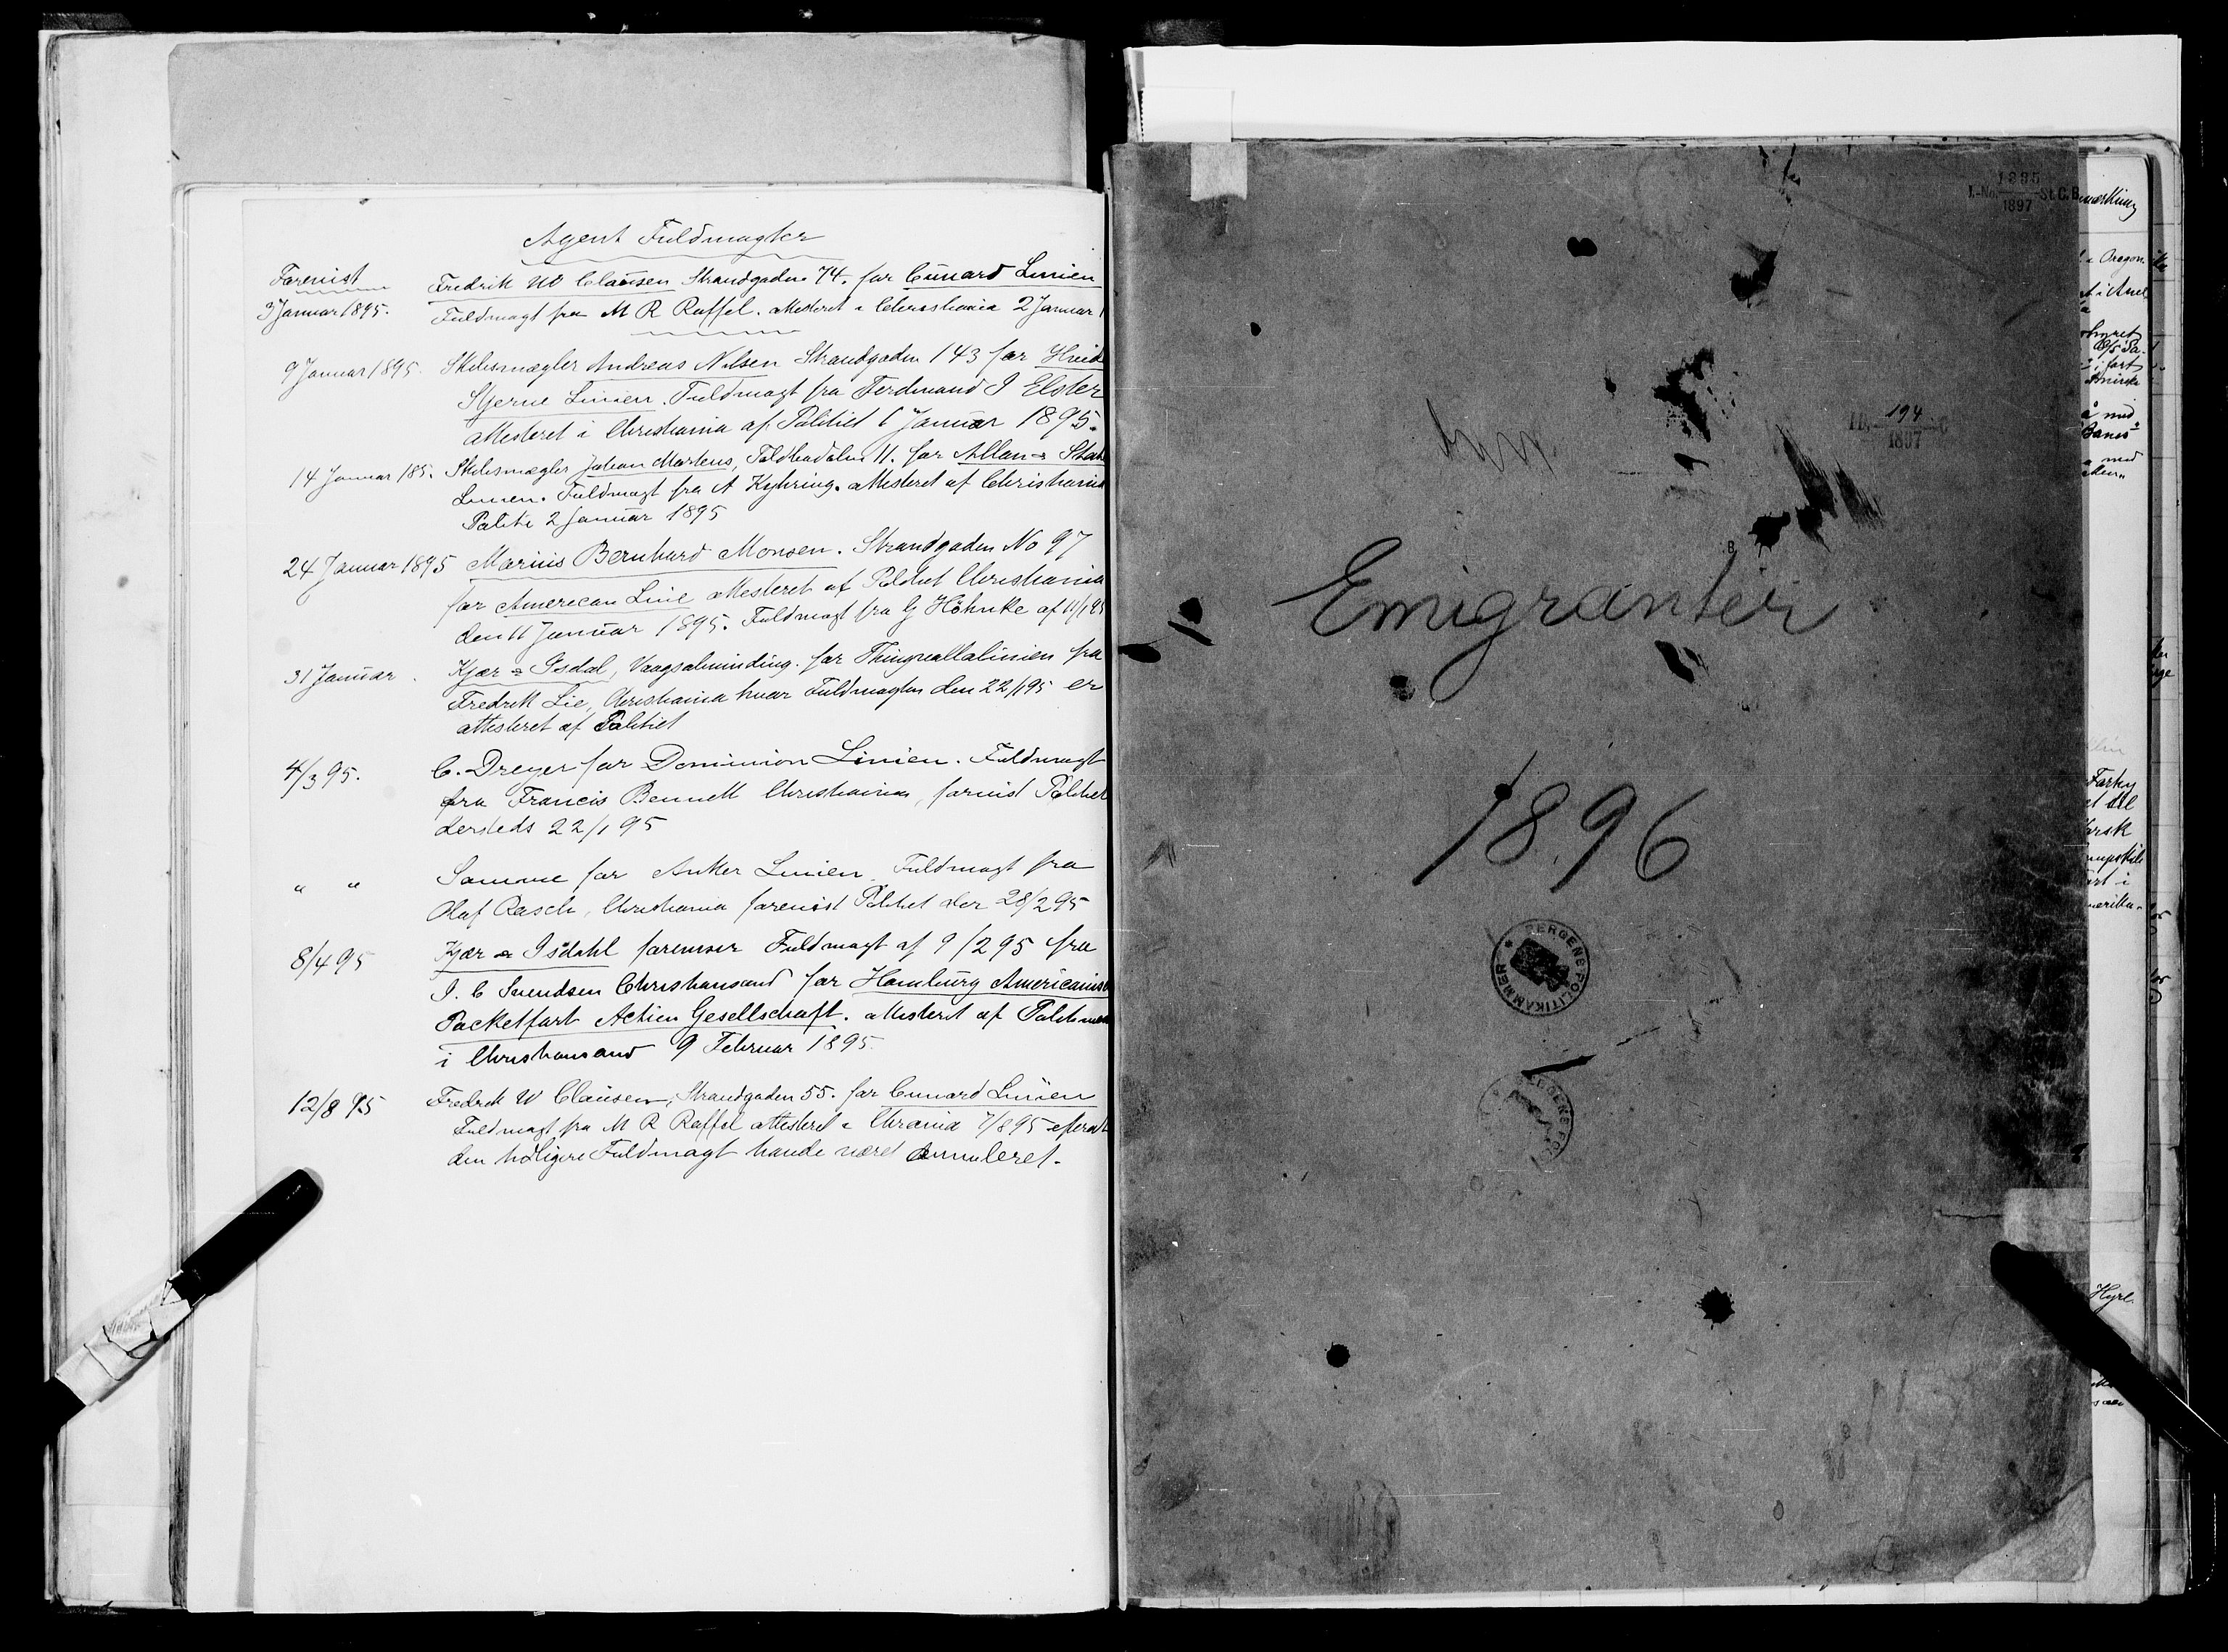 Agent Fuldmagter
Forevist
3 Januar 1895. Fredrik W Clausen Strandgaden 74. for Cunard Linien
Fuldmagt fra M R Raffel. attesteret i Christiania 2 Januar
9 Januar 1895. Skibsmægler Andreas Nilsen Strandgaden 143 for Hvid
Stjerne Linien. Fuldmagt fra Ferdinand I Elster
attesteret i Christiania af Politiet 6 Januar 1895.
14 Januar 185. Skibsmægler Johan Martens, Toldbodalm 11. for Allan & State
Linien. Fuldmagt fra A Kyhring. attesteret af Christiania
Politi 2 Januar 1895
24 Januar 1895 Marius Bernhard Monsen. Strandgaden No 97
for American Line attesteret af Politiet Christiania
den 11 Januar 1895. Fuldmagt fra G Höhnke af 11/1 95
31 Januar. Kjær & Isdal, Vaagsalminding. for Thingvallalinien fra
Fredrik Lie, Christiania hvor Fuldmagten den 22/1 95 er
attesteret af Politiet
4/3 95. C. Dreyer for Dominion Linien. Fuldmagt
fra Francis Bennett Christiania, forevist Politiet
dersteds 22/1 95
" " Samme for Anker Linien. Fuldmagt fra
Olaf Rasch, Christiania forevist Politiet der 28/2 95
8/4 95 Kjær & Isdahl foreviser Fuldmagt af 9/2 95 fra
I. C Svendsen Christiansand for Hamburg Americanische
Packetfart Actien Gesellschaft. attesteret af Politimest
i Christiansand 9 Februar 1895.
12/8 95 Fredrik W Clausen, Strandgaden 55. for Cunard Linien
Fuldmagt fra M R Raffel attesteret i Chrania 7/8 95 efterat
den tidligere Fuldmagt havde været annuleret.
J.-No. 1895/1897 St. C. B.
194
1897
Emigranter
1896
BERGENS POLITIKAMMER
Bemærkning
i Oregon.
Hyre.